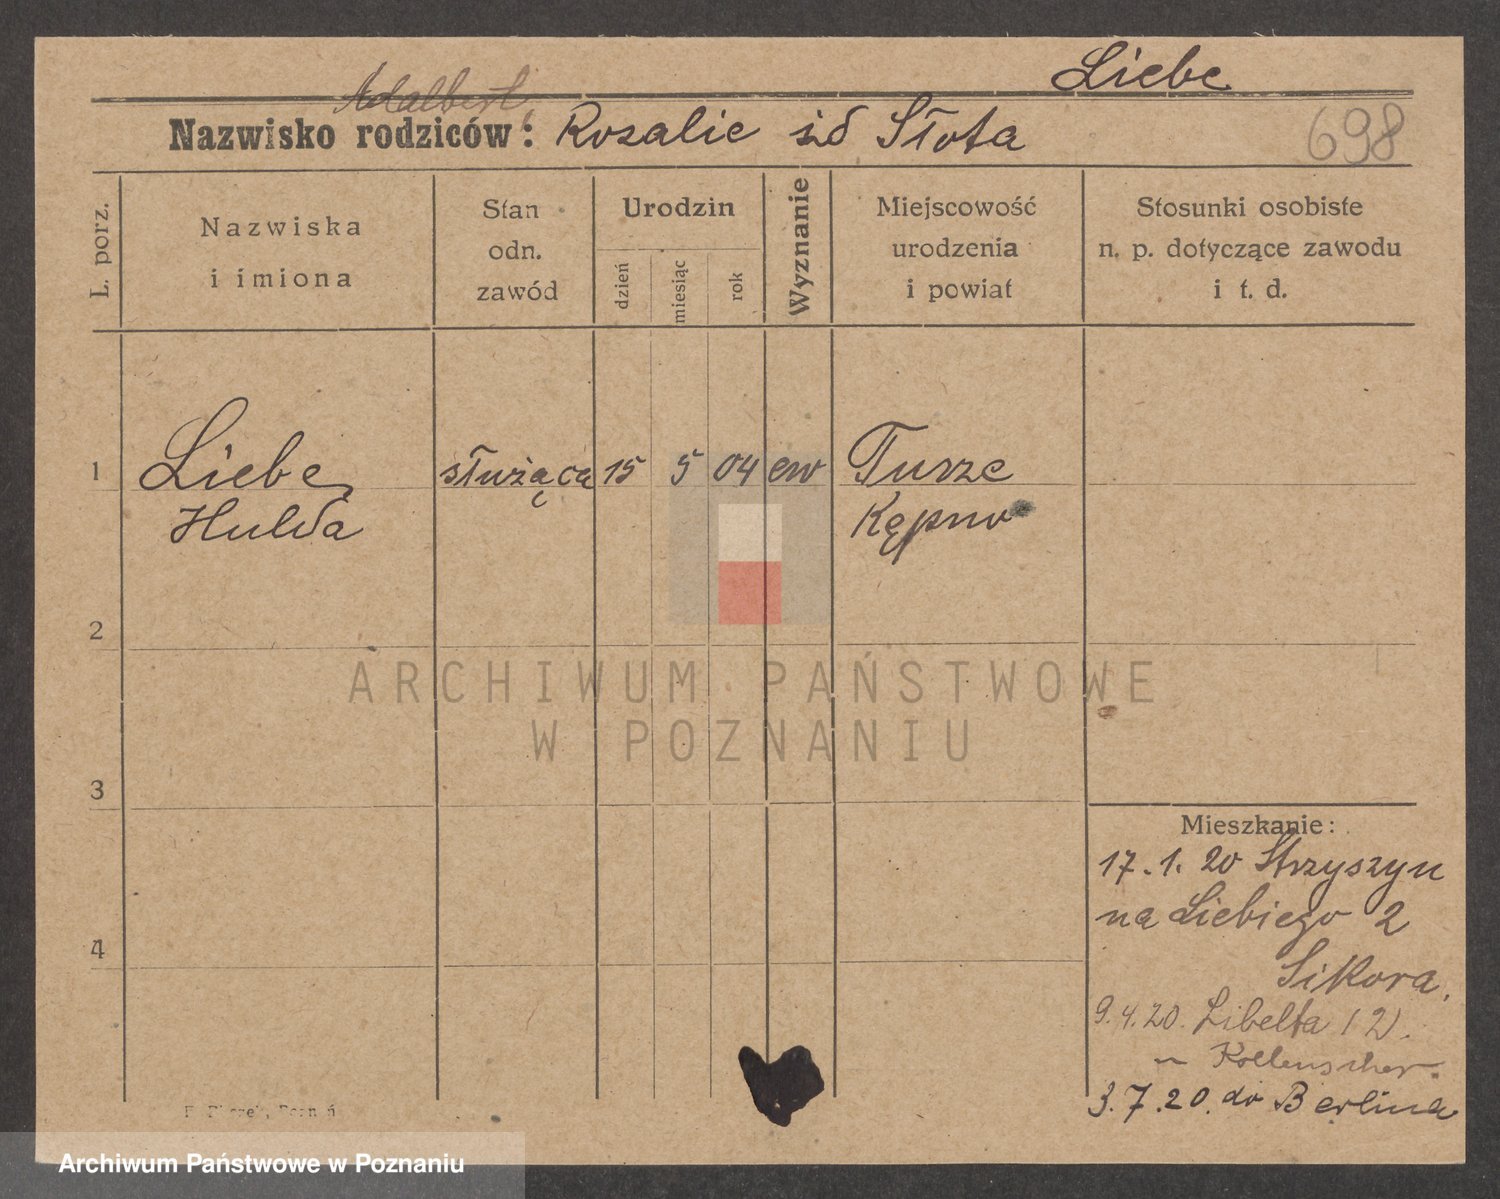 Liebe
Adalbert,
Nazwisko rodziców: Rozalie żd Słota
698
L. porz.
Nazwiska
i imiona
Stan
odn.
zawód
Urodzin
dzień
miesiąc
rok
Wyznanie
Miejscowość
urodzenia
i powiat
Stosunki osobiste
n. p. dotyczące zawodu
i t. d.
1 Liebe służąca 15 5 04 ew Turze
Hulda Kępno
2
ARCHIWUM PAŃSTWOWE
W POZNANIU
3
Mieszkanie:
17.1.20 Strzyszyn
na Liebiego 2
Sikora.
4
9.4.20. Libelta 12.
Kollenscher.
3.7.20. do Berlina
Archiwum Państwowe w Poznaniu